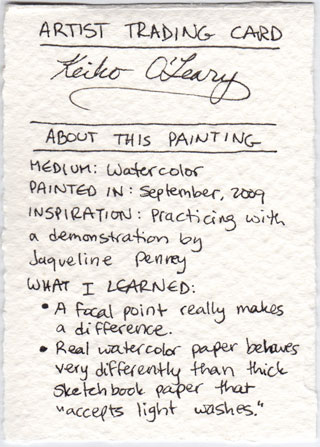 ARTIST TRADING CARD
Keiko O'Leary
ABOUT THIS PAINTING
MEDIUM: Watercolor
PAINTED IN: September, 2009
INSPIRATION: Practicing with
a demonstration by
Jaqueline Penney
WHAT I LEARNED:
• A focal point really makes
a difference.
• Real watercolor paper behaves
very differently than thick
sketchbook paper that
"accepts light washes."